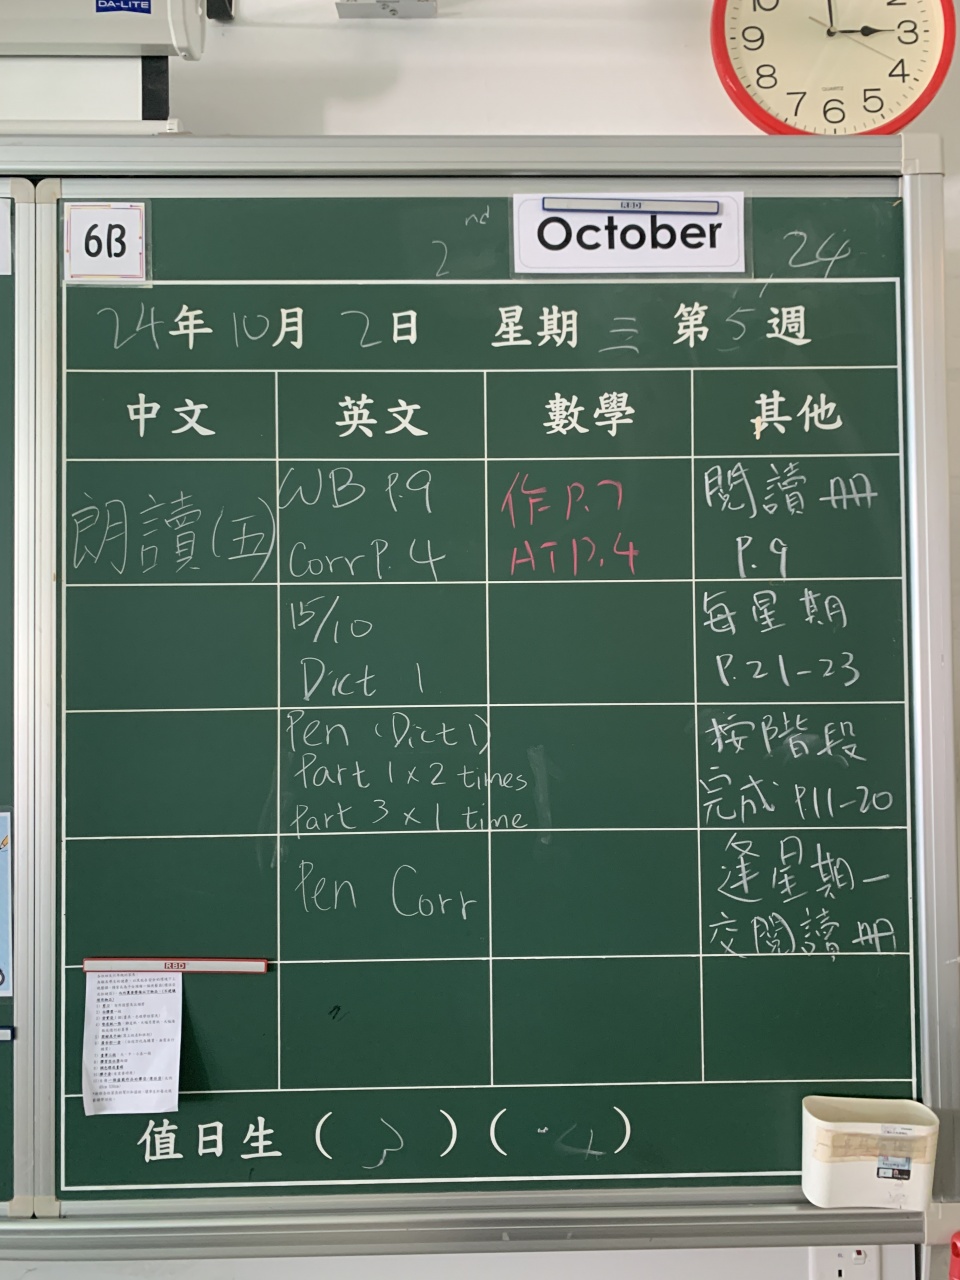 DA-LITE
10 2
9 3
8 4
7 6 5
QUARTZ
6B
2nd October, 24
24年10月2日 星期三 第5週
中文 英文 數學 其他
朗讀(五)
WB P.9
Corr P.4
作 P.7
AT P.4
閱讀冊
P.9
15/10
Dict 1
每星期
P.21-23
Pen (Dict 1)
Part 1 x 2 times
Part 3 x 1 time
按階段
完成 P.11-20
Pen Corr
逢星期一
交閱讀冊
RBD
RBD
值日生(3)(4)